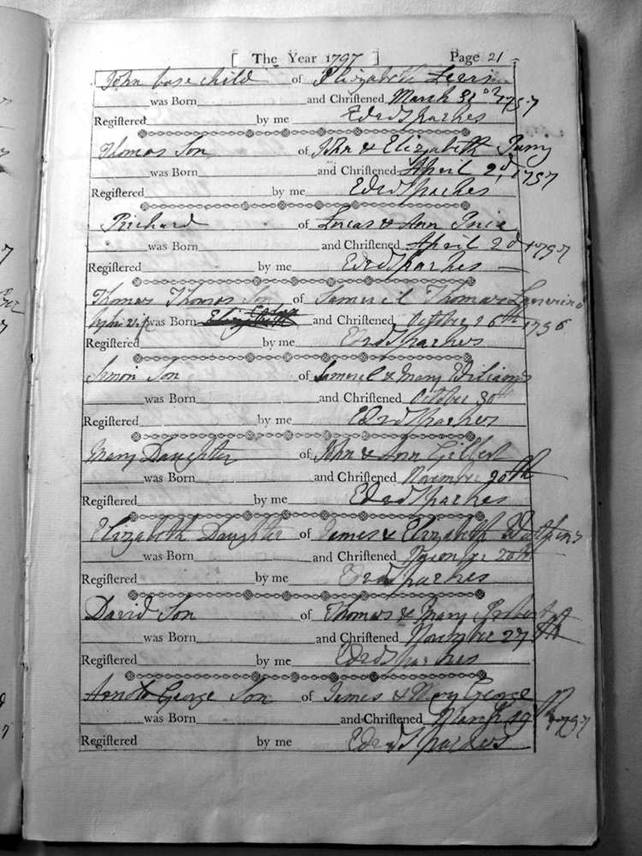 [ The Year 1797 ] Page 21
John base child of Elizabeth
was Born and Chriſtened March 31 1797
Regiſtered by me Edwd Sparkes
Thomas Son of John & Elizabeth Parry
was Born and Chriſtened April 2d 1797
Regiſtered by me Edwd Sparkes
Richard of Lucas & Ann Price
was Born and Chriſtened April 2d 1797
Regiſtered by me Edwd Sparkes
Thomas Thomas Son of Samuel Thomas
was Born and Chriſtened October 16th 1796
Regiſtered by me Edwd Sparkes
Simon Son of Samuel & Mary Williams
was Born and Chriſtened October 30th
Regiſtered by me Edwd Sparkes
Mary Daughter of John & Ann Gilbert
was Born and Chriſtened November 20th
Regiſtered by me Edwd Sparkes
Elizabeth Daughter of James & Elizabeth
was Born and Chriſtened November 20th
Regiſtered by me Edwd Sparkes
David Son of Thomas & Mary
was Born and Chriſtened November 27th
Regiſtered by me Edwd Sparkes
George Son of James & Mary George
was Born and Chriſtened March 19th 1797
Regiſtered by me Edwd Sparkes